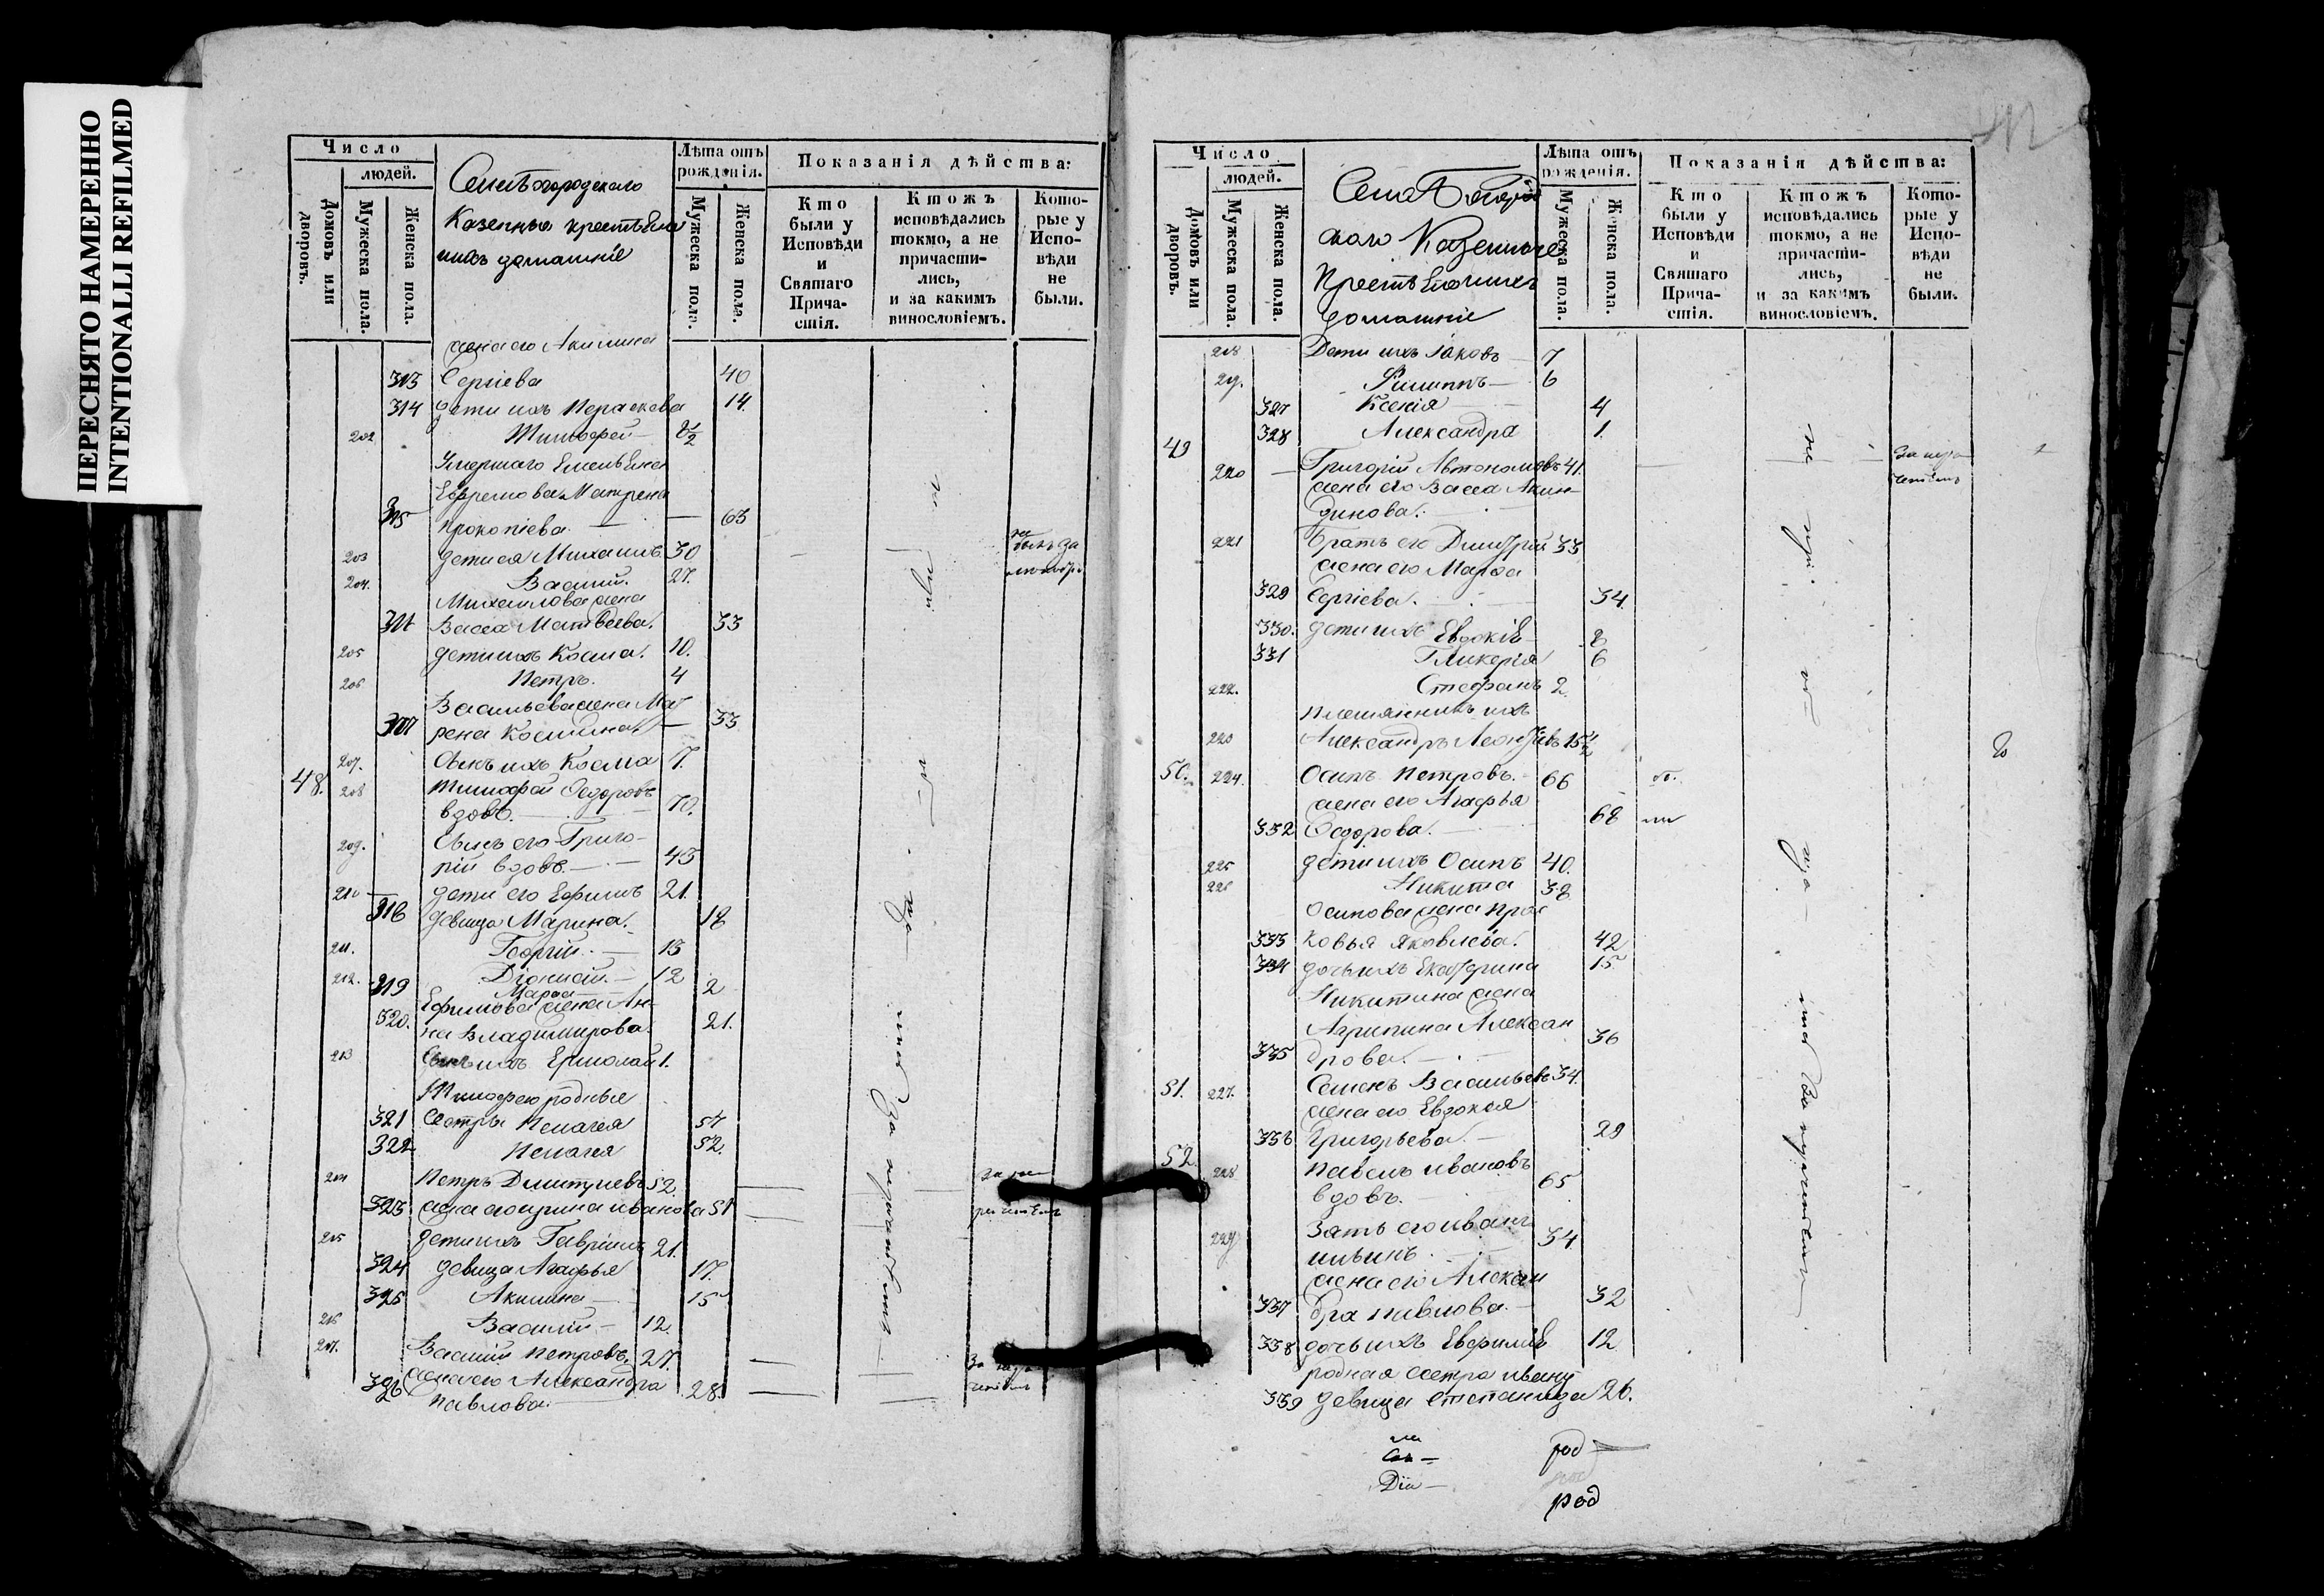 ПЕРЕСНЯТО НАМЕРЕННО
INTENTIONALLI REFILMED
Число
людей.
Домовъ или дворовъ.
Мужеска пола.
Женска пола.
Казенныхъ крестьян
нихъ домашніе
Лѣта отъ рожденія.
Мужеска пола.
Женска пола.
Показанія дѣйства:
Кто были у Исповѣди и Святаго Причастія.
Ктожъ исповѣдались токмо, а не причастились, и за какимъ винословіемъ.
Которые у Исповѣди не были.
жена его Акилина
313 Сергіева 40
314 дети ихъ Параскева 14.
202 Тимофей 8½
Умершаго Емельяна
Ефремова Матрена
315 Прокопіева 63
203 дети ея Михаилъ 30
204. Василій. 27.
Михаилова жена
Васса Матвѣева. 33
205 дети ихъ Косма. 10.
206 Петръ. 4
Васильева жена Мат
рена Космина 33
207. Сынъ ихъ Косма 7.
48. 208 Тимофей Федоровъ
вдовъ. 70.
209. Сынъ его Григо-
рій вдовъ. 43
210 дети его Ефимъ 21.
318 девица Марина. 18
211. Георгій 13
212. Діонисій. 12
319 Марѳа 2
Ефимова жена Ан-
320. на Владимирова. 21.
213 Сынъ ихъ Ермолай 1.
Тимофею родные
321 сестры Пелагея 54
322 Пелагея 52.
214 Петръ Димитриевъ 52.
323 жена его Ирина Иванова 51
215 дети ихъ Гавріилъ 21.
324 девица Агафья 17.
325 Акилина 15
216 Василій 12.
217. Василій Петровъ. 27.
жена его Александра
326 Павлова. 28.
за нерачениемъ
Число
людей.
Домовъ или дворовъ.
Мужеска пола.
Женска пола.
Казенные
Крестьянихъ
домашніе
Лѣта отъ рожденія.
Мужеска пола.
Женска пола.
Показанія дѣйства:
Кто были у Исповѣди и Святаго Причастія.
Ктожъ исповѣдались токмо, а не причастились, и за какимъ винословіемъ.
Которые у Исповѣди не были.
218 Дети ихъ Іаковъ 7
219. Филиппъ 6
327 Ксенія 4
328 Александра 1.
49 220 Григорій Автономовъ 41.
жена его Васса Акин-
динова.
221 Братъ его Димитрій 33
жена его Марѳа
329 Сергіева. 34.
330. дети ихъ Евдокія 8
331 Гликерія 6
222. Стефанъ 2.
племянникъ ихъ
223 Александръ Леонтіевъ 15½
50. 224. Осипъ Петровъ. 66
жена его Агафья
332 Федорова. 68
225 дети ихъ Осипъ 40.
226 Никита 38
Осипова жена Прас
333 ковья Яковлева. 42
334 дочь ихъ Екатерина 15.
Никитина жена
Агрипина Алексан
335 дрова. 36
51. 227. Семенъ Васильевъ 34.
жена его Евдокея
336 Григорьева. 29
52. 228 Павелъ Ивановъ
вдовъ. 65.
229 Зять его Иванъ
Ильинъ. 34
жена его Алексан
337 дра Павлова. 32
338 дочь ихъ Евфимія 12
родная сестра Ивану
339 девица Степанида 26.
род
род